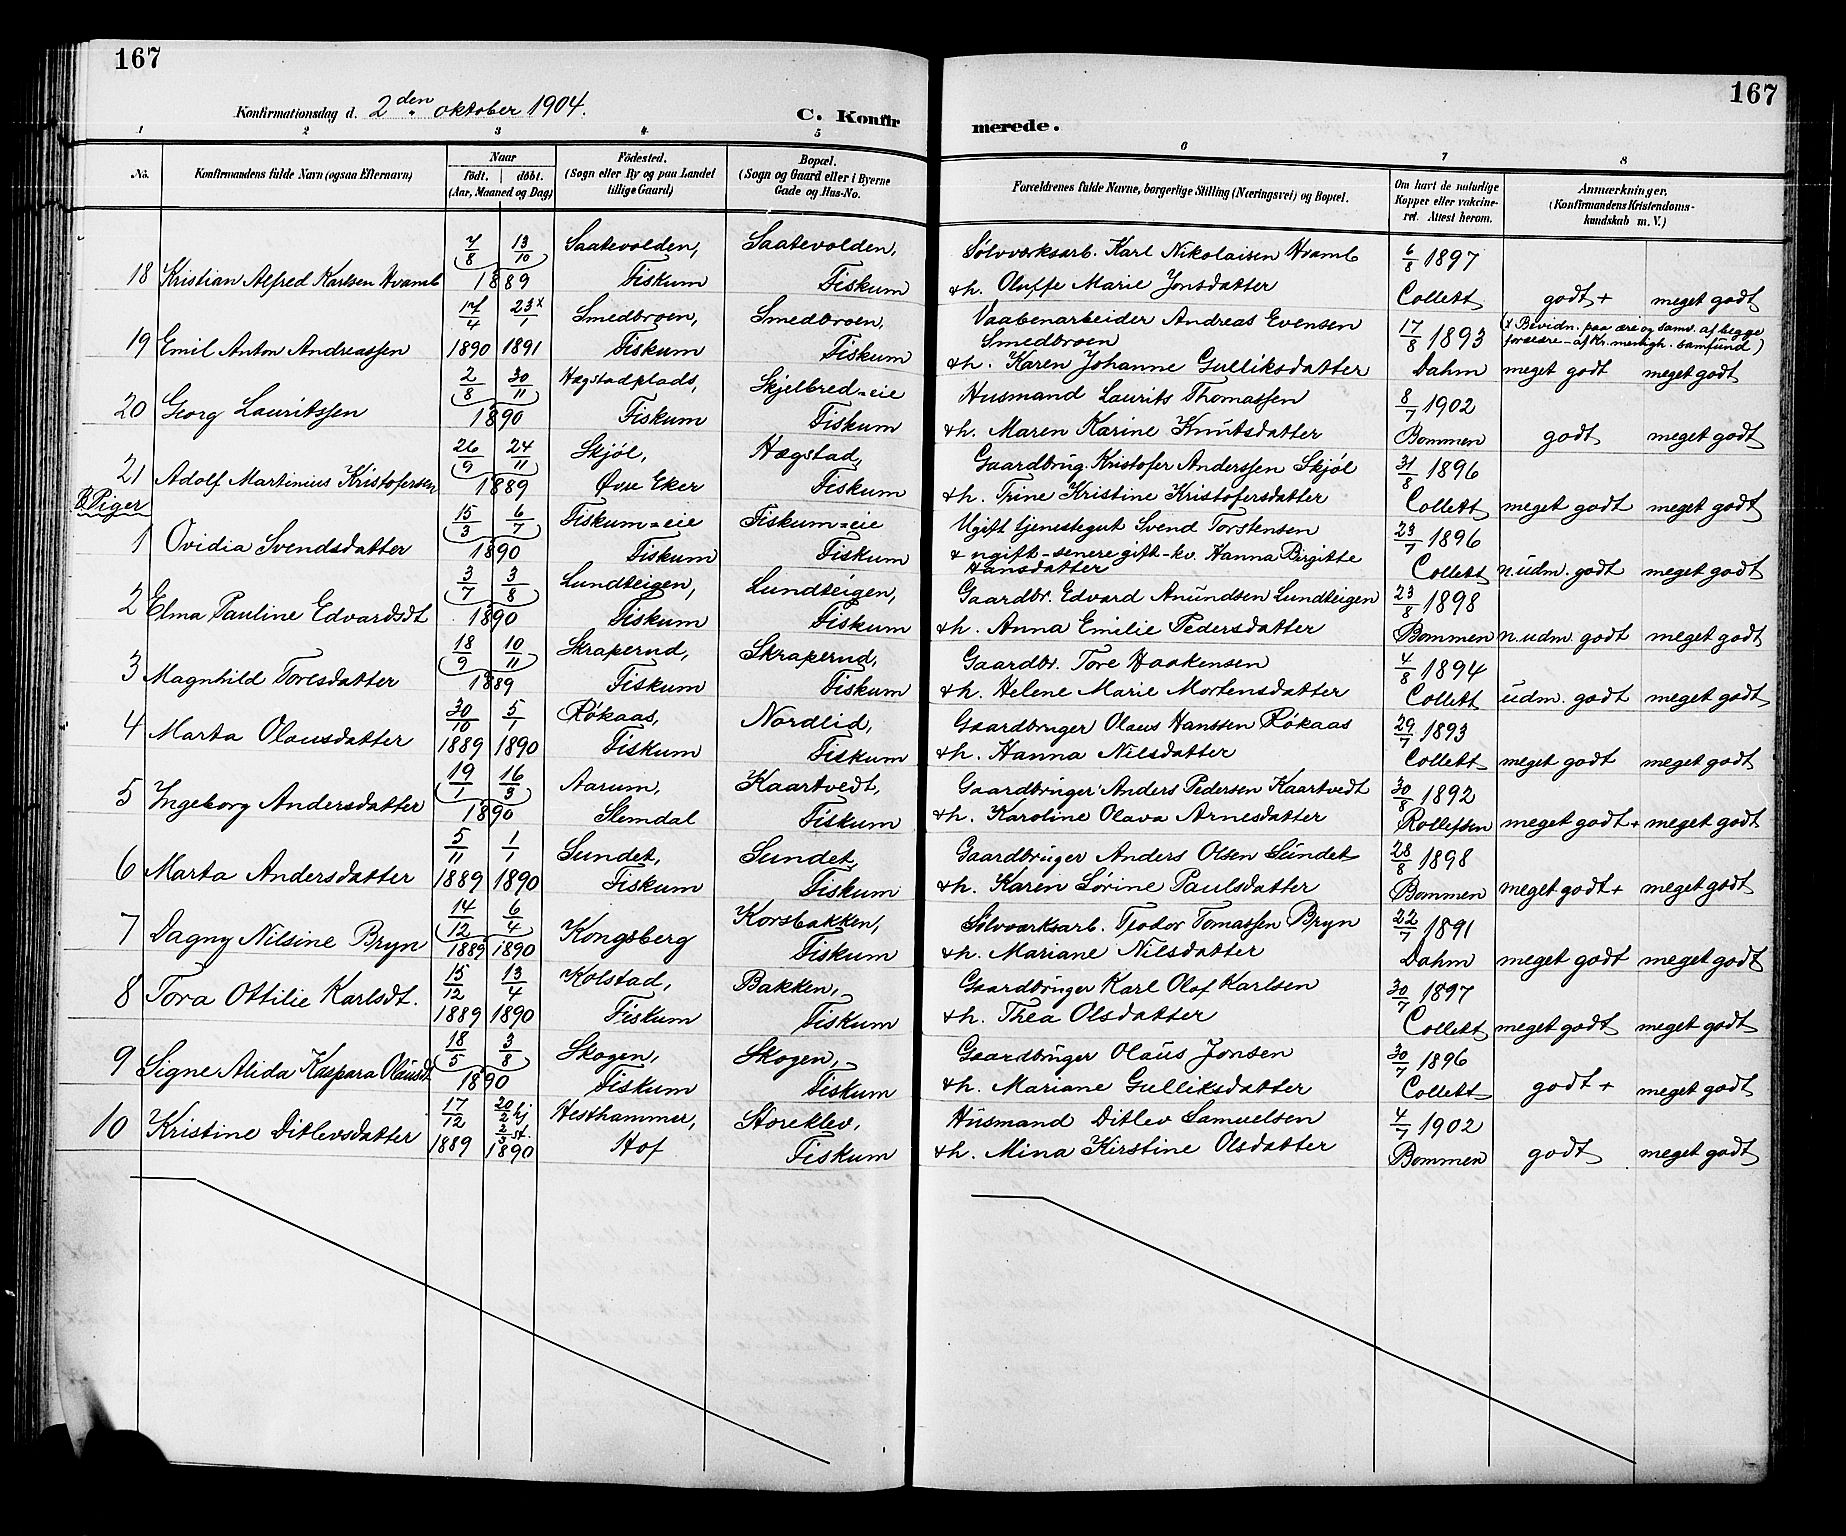 167
167
Konfirmationsdag d. 2den oktober 1904.
C. Konfirmerede.
1 2 3 4 5 6 7 8
No. Konfirmandens fulde Navn (ogsaa Efternavn) Naar født. døbt. (Aar, Maaned og Dag) Fødested. (Sogn eller By og paa Landet tillige Gaard) Bopæl. (Sogn og Gaard eller i Byerne Gade og Hus-No. Forældrenes fulde Navne, borgerlige Stilling (Næringsvei) og Bopæl. Om havt de naturlige Kopper eller vakcineret. Attest herom. Anmærkninger. (Konfirmandens Kristendomskundskab m. V.)
7/8 13/10 Saatevolden, Saatevolden, Sølvværksarb. Karl Nikolaisen Hvamb 6/8 1897
18 Kristian Alfred Karlsen Hvamb 1889 Fiskum Fiskum & h. Oluffe Marie Jonsdatter Collett godt + meget godt
17/4 23x/1 Smedbroen, Smedbroen, Vaabenarbeider Andreas Evensen Smedbroen 17/8 1893 (x Bevidn. paa ære og samv. af begge forældre - af Kr. menigh. samfund)
19 Emil Anton Andreassen 1890 1891 Fiskum Fiskum & h. Karen Johanne Gulliksdatter Dahm meget godt meget godt
2/8 30/11 Hægstadplads, Skjelbred=eie Husmand Laurits Thomassen 8/7 1902
20 Georg Lauritssen 1890 Fiskum Fiskum & h. Maren Karine Knutsdatter Bommen godt meget godt
26/9 24/11 Skjøl, Hægstad, Gaardbrug. Kristofer Anderssen Skjøl 31/8 1896
21 Adolf Martinius Kristofersen 1889 Øvre Eker Fiskum & h. Trine Kristine Kristofersdatter Collett meget godt meget godt
B. Piger
15/3 6/7 Fiskum=eie Fiskum=eie Ugift tjenestegut Svend Torstensen 23/7 1896
1 Ovidia Svendsdatter 1890 Fiskum Fiskum & ugift - senere gift - kv. Hanna Birgitte Hansdatter Collett n. udm. godt meget godt
3/7 3/8 Lundteigen, Lundteigen, Gaardbr. Edvard Anundsen Lundteigen 23/8 1898
2 Elma Pauline Edvardsdt 1890 Fiskum Fiskum & h. Anna Emilie Pedersdatter Bommen n. udm. godt meget godt
18/9 10/11 Skraperud, Skraperud, Gaardbr. Tore Haakensen 4/8 1894
3 Magnhild Toresdatter 1889 Fiskum Fiskum & h. Helene Marie Mortensdatter Collett udm. godt meget godt
30/10 5/1 Røkaas, Nordlid, Gaardbruger Olaus Hanssen Røkaas 29/7 1893
4 Marta Olausdatter 1889 1890 Fiskum Fiskum & h. Hanna Nilsdatter Collett meget godt meget godt
19/1 16/3 Aarum, Kaartvedt, Gaardbruger Anders Pedersen Kaartvedt 30/8 1892
5 Ingeborg Andersdatter 1890 Slemdal Fiskum & h. Karoline Olava Arnesdatter Rollefsen meget godt + meget godt
5/11 1/1 Sundet, Sundet, Gaardbruger Anders Olsen Sundet 28/8 1898
6 Marta Andersdatter 1889 1890 Fiskum Fiskum & h. Karin Sørine Paulsdatter Bommen meget godt + meget godt
14/12 6/4 Korsbakken, Sølvværksarb. Teodor Tomassen Bryn 22/7 1891
7 Dagny Nilsine Bryn 1889 1890 Kongsberg Fiskum & h. Mariane Nilsdatter Dahm meget godt meget godt
15/12 13/4 Kolstad, Bakken, Gaardbruger Karl Olaf Karlsen 30/7 1897
8 Tora Ottilie Karlsdt. 1889 1890 Fiskum Fiskum & h. Thea Olsdatter Collett meget godt meget godt
18/5 3/8 Skogen, Skogen, Gaardbruger Olaus Jonsen 30/7 1896
9 Signe Alida Kaspara Olausdt 1890 Fiskum Fiskum & h. Mariane Gulliksdatter Collett godt + meget godt
17/12 20/2 hj Hesthammer, Storeklev, Husmand Ditlev Samuelsen 4/7 1902
10 Kristine Ditlevsdatter 1889 2/3 st. 1890 Hof Fiskum & h. Mina Kirstine Olsdatter Bommen godt meget godt